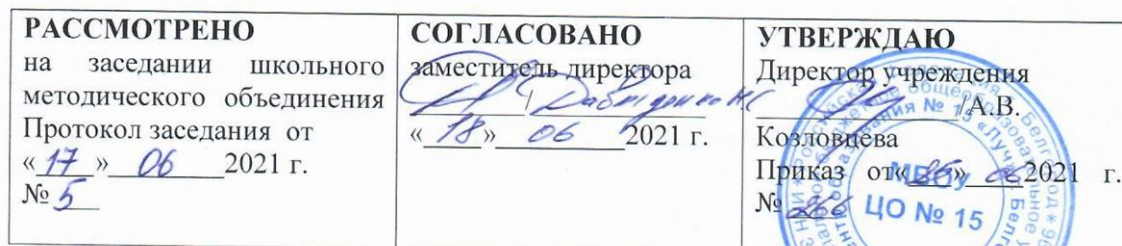 РАССМОТРЕНО
на заседании школьного
методического объединения
Протокол заседания от
«17» 06 2021 г.
№ 5
СОГЛАСОВАНО
заместитель директора
«18» 06 2021 г.
УТВЕРЖДАЮ
Директор учреждения
/А.В.
Козловцева
Приказ от« » 2021 г.
№ 266
МБОУ
ЦО № 15